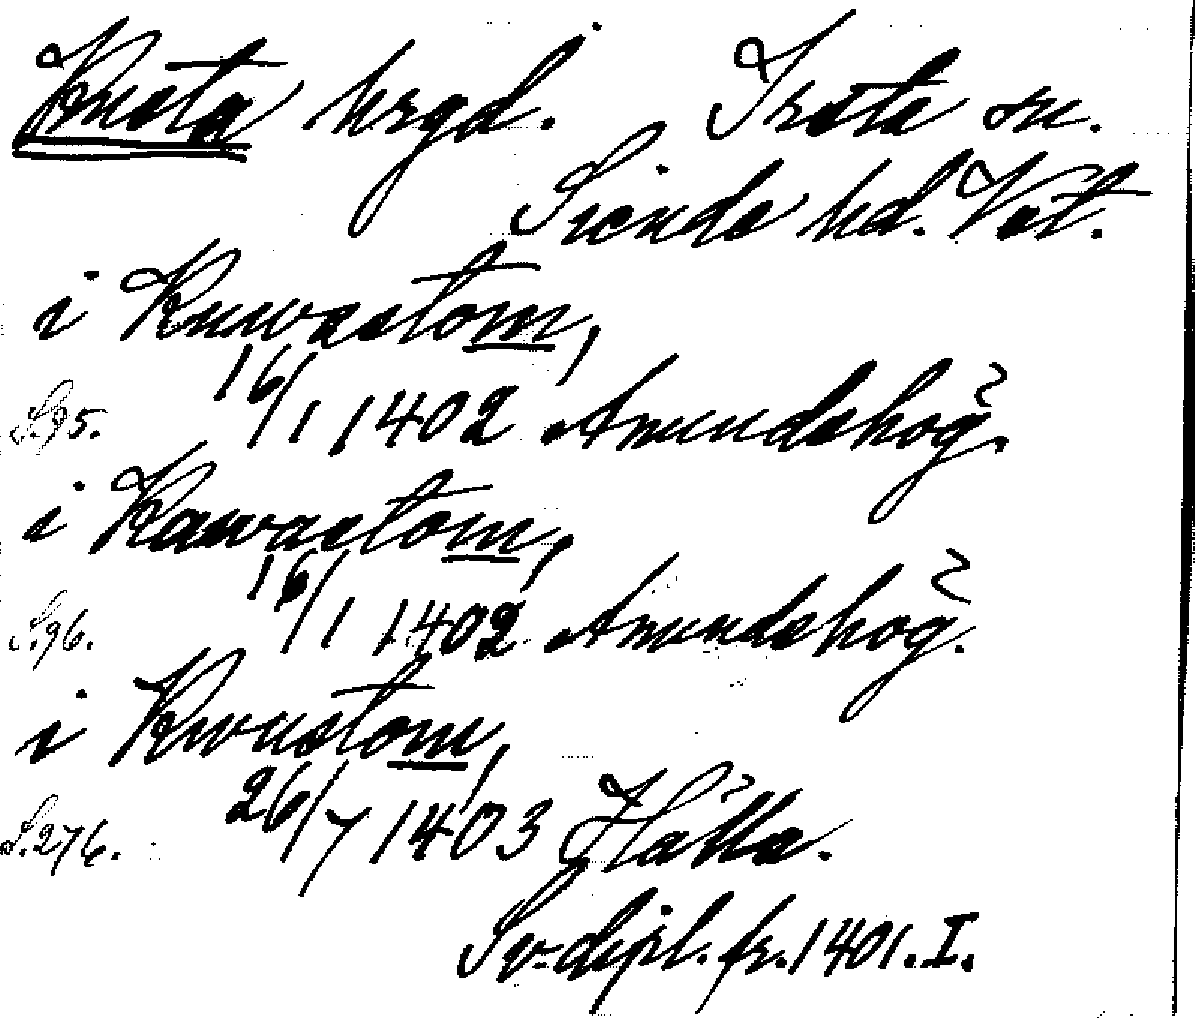 Kusta hrgd. Irsta sn.
Siende hd. Vst.
i Kuwastom,
S.95. 16/1 1402 Amundshög.
i Kawastom,
S.96. 16/1 1402 Amundshög.
i Kwustom,
S.276. 26/7 1403 Hälla.
Sv. dipl. fr. 1401. I.